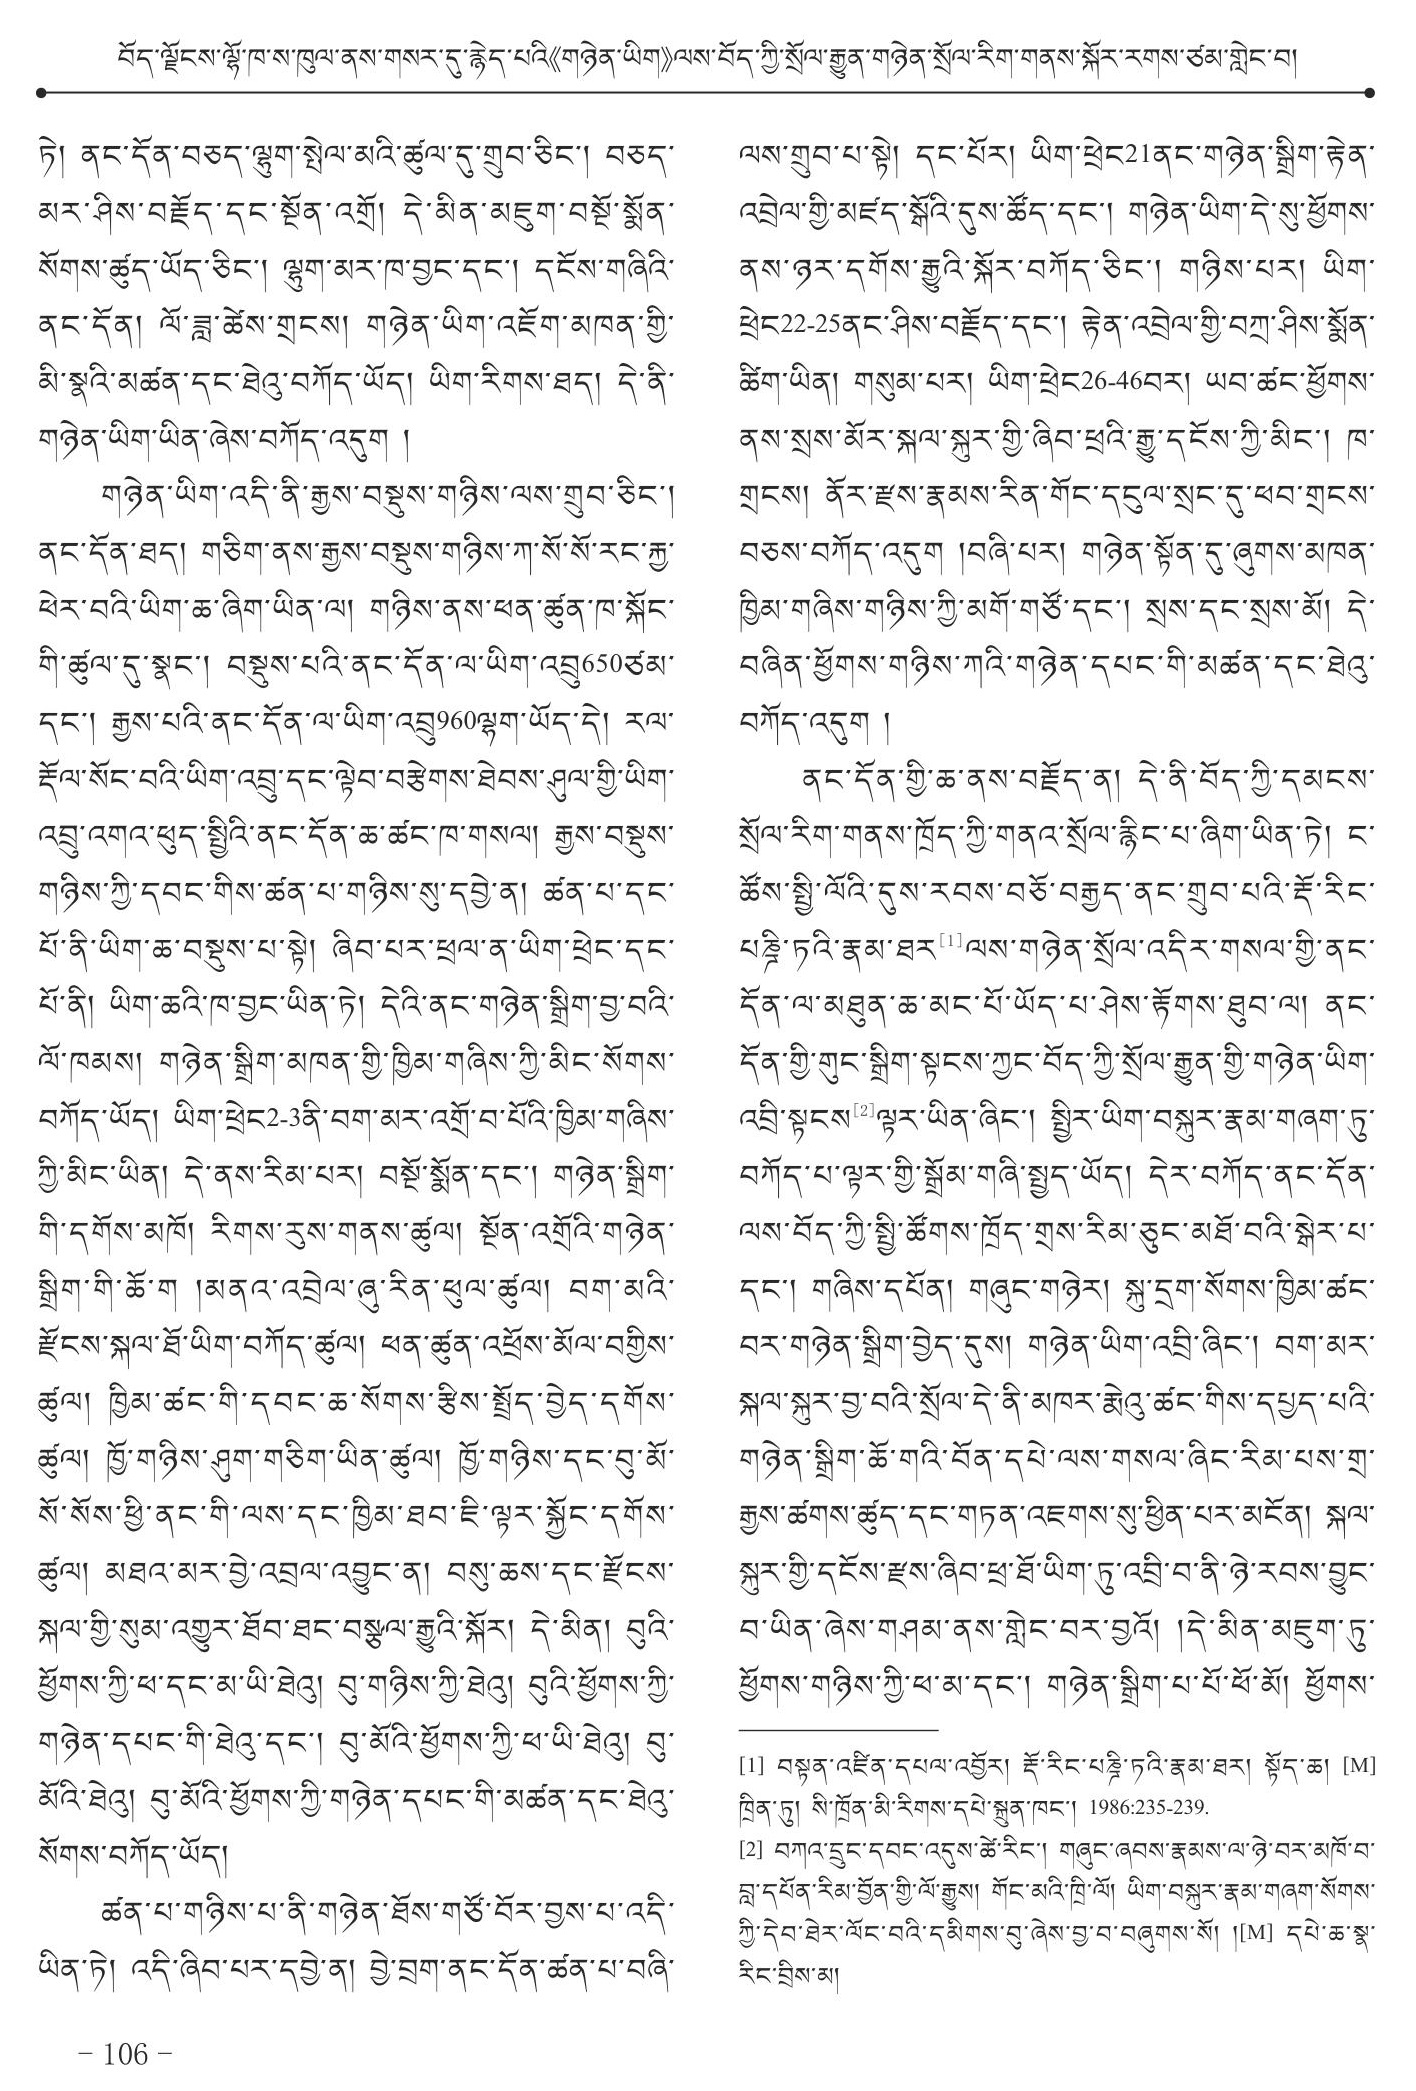 བོད་ལྗོངས་ལྷོ་ཁ་ས་ཁུལ་ནས་གསར་དུ་རྙེད་པའི《གཉེན་ཡིག》ལས་བོད་ཀྱི་སྲོལ་རྒྱུན་གཉེན་སྲོལ་རིག་གནས་སྐོར་རགས་ཙམ་གླེང་བ།
ཏེ། ནང་དོན་བཅད་ལྷུག་སྤེལ་མའི་ཚུལ་དུ་གྲུབ་ཅིང་། བཅད་
མར་ཤིས་བརྗོད་དང་སྔོན་འགྲོ། དེ་མིན་མཇུག་བསྔོ་སྨོན་
སོགས་ཚུད་ཡོད་ཅིང་། ལྷུག་མར་ཁ་བྱང་དང་། དངོས་གཞིའི་
ནང་དོན། ལོ་ཟླ་ཚེས་གྲངས། གཉེན་ཡིག་འཇོག་མཁན་གྱི་
མི་སྣའི་མཚན་དང་ཐེའུ་བཀོད་ཡོད། ཡིག་རིགས་ཐད། དེ་ནི་
གཉེན་ཡིག་ཡིན་ཞེས་བཀོད་འདུག །
གཉེན་ཡིག་འདི་ནི་རྒྱས་བསྡུས་གཉིས་ལས་གྲུབ་ཅིང་།
ནང་དོན་ཐད། གཅིག་ནས་རྒྱས་བསྡུས་གཉིས་ཀ་སོ་སོ་རང་རྐྱ་
ཕེར་བའི་ཡིག་ཆ་ཞིག་ཡིན་ལ། གཉིས་ནས་ཕན་ཚུན་ཁ་སྐོང་
གི་ཚུལ་དུ་སྣང་། བསྡུས་པའི་ནང་དོན་ལ་ཡིག་འབྲུ650ཙམ་
དང་། རྒྱས་པའི་ནང་དོན་ལ་ཡིག་འབྲུ960ལྷག་ཡོད་དེ། རལ་
རྡོལ་སོང་བའི་ཡིག་འབྲུ་དང་ལྟེབ་བརྩེགས་ཐེབས་ཤུལ་གྱི་ཡིག་
འབྲུ་འགའ་ཕུད་སྤྱིའི་ནང་དོན་ཆ་ཚང་ཁ་གསལ། རྒྱས་བསྡུས་
གཉིས་ཀྱི་དབང་གིས་ཚན་པ་གཉིས་སུ་དབྱེ་ན། ཚན་པ་དང་
པོ་ནི་ཡིག་ཆ་བསྡུས་པ་སྟེ། ཞིབ་པར་ཕྲལ་ན་ཡིག་ཕྲེང་དང་
པོ་ནི། ཡིག་ཆའི་ཁ་བྱང་ཡིན་ཏེ། དེའི་ནང་གཉེན་སྒྲིག་བྱ་བའི་
ལོ་ཁམས། གཉེན་སྒྲིག་མཁན་གྱི་ཁྱིམ་གཞིས་ཀྱི་མིང་སོགས་
བཀོད་ཡོད། ཡིག་ཕྲེང2-3ནི་བག་མར་འགྲོ་བ་པོའི་ཁྱིམ་གཞིས་
ཀྱི་མིང་ཡིན། དེ་ནས་རིམ་པར། བསྔོ་སྨོན་དང་། གཉེན་སྒྲིག་
གི་དགོས་མཁོ། རིགས་རུས་གནས་ཚུལ། སྔོན་འགྲོའི་གཉེན་
སྒྲིག་གི་ཆོ་ག །མནའ་འབྲེལ་ཞུ་རིན་ཕུལ་ཚུལ། བག་མའི་
རྫོངས་སྐལ་ཐོ་ཡིག་བཀོད་ཚུལ། ཕན་ཚུན་འཕྲོས་མོལ་བགྱིས་
ཚུལ། ཁྱིམ་ཚང་གི་དབང་ཆ་སོགས་རྩིས་སྤྲོད་བྱེད་དགོས་
ཚུལ། ཁྱོ་གཉིས་ཤུག་གཅིག་ཡིན་ཚུལ། ཁྱོ་གཉིས་དང་བུ་མོ་
སོ་སོས་ཕྱི་ནང་གི་ལས་དང་ཁྱིམ་ཐབ་ཇི་ལྟར་སྐྱོང་དགོས་
ཚུལ། མཐའ་མར་བྱེ་འབྲལ་འབྱུང་ན། བསུ་ཆས་དང་རྫོངས་
སྐལ་གྱི་སུམ་འགྱུར་ཐོབ་ཐང་བསྩལ་རྒྱུའི་སྐོར། དེ་མིན། བུའི་
ཕྱོགས་ཀྱི་ཕ་དང་མ་ཡི་ཐེའུ། བུ་གཉིས་ཀྱི་ཐེའུ། བུའི་ཕྱོགས་ཀྱི་
གཉེན་དཔང་གི་ཐེའུ་དང་། བུ་མོའི་ཕྱོགས་ཀྱི་ཕ་ཡི་ཐེའུ། བུ་
མོའི་ཐེའུ། བུ་མོའི་ཕྱོགས་ཀྱི་གཉེན་དཔང་གི་མཚན་དང་ཐེའུ་
སོགས་བཀོད་ཡོད།
ཚན་པ་གཉིས་པ་ནི་གཉེན་ཐོས་གཙོ་བོར་བྱས་པ་འདི་
ཡིན་ཏེ། འདི་ཞིབ་པར་དབྱེ་ན། བྱེ་བྲག་ནང་དོན་ཚན་པ་བཞི་
ལས་གྲུབ་པ་སྟེ། དང་པོར། ཡིག་ཕྲེང21ནང་གཉེན་སྒྲིག་རྟེན་
འབྲེལ་གྱི་མཛད་སྒོའི་དུས་ཚོད་དང་། གཉེན་ཡིག་དེ་སུ་ཕྱོགས་
ནས་ཉར་དགོས་རྒྱུའི་སྐོར་བཀོད་ཅིང་། གཉིས་པར། ཡིག་
ཕྲེང22-25ནང་ཤིས་བརྗོད་དང་། རྟེན་འབྲེལ་གྱི་བཀྲ་ཤིས་སྨོན་
ཚིག་ཡིན། གསུམ་པར། ཡིག་ཕྲེང26-46བར། ཡབ་ཚང་ཕྱོགས་
ནས་སྲས་མོར་སྐལ་སྐུར་གྱི་ཞིབ་ཕྲའི་རྒྱུ་དངོས་ཀྱི་མིང་། ཁ་
གྲངས། ནོར་རྫས་རྣམས་རིན་གོང་དངུལ་སྲང་དུ་ཕབ་གྲངས་
བཅས་བཀོད་འདུག །བཞི་པར། གཉེན་སྟོན་དུ་ཞུགས་མཁན་
ཁྱིམ་གཞིས་གཉིས་ཀྱི་མགོ་གཙོ་དང་། སྲས་དང་སྲས་མོ། དེ་
བཞིན་ཕྱོགས་གཉིས་ཀའི་གཉེན་དཔང་གི་མཚན་དང་ཐེའུ་
བཀོད་འདུག །
ནང་དོན་གྱི་ཆ་ནས་བརྗོད་ན། དེ་ནི་བོད་ཀྱི་དམངས་
སྲོལ་རིག་གནས་ཁྲོད་ཀྱི་གནའ་སྲོལ་རྙིང་པ་ཞིག་ཡིན་ཏེ། ང་
ཚོས་སྤྱི་ལོའི་དུས་རབས་བཅོ་བརྒྱད་ནང་གྲུབ་པའི་རྡོ་རིང་
པཎྜི་ཏའི་རྣམ་ཐར[1]ལས་གཉེན་སྲོལ་འདིར་གསལ་གྱི་ནང་
དོན་ལ་མཐུན་ཆ་མང་པོ་ཡོད་པ་ཤེས་རྟོགས་ཐུབ་ལ། ནང་
དོན་གྱི་གུང་སྒྲིག་སྟངས་ཀྱང་བོད་ཀྱི་སྲོལ་རྒྱུན་གྱི་གཉེན་ཡིག་
འབྲི་སྟངས[2]ལྟར་ཡིན་ཞིང་། སྤྱིར་ཡིག་བསྐུར་རྣམ་གཞག་ཏུ་
བཀོད་པ་ལྟར་གྱི་སྒྲོམ་གཞི་སྤྱད་ཡོད། དེར་བཀོད་ནང་དོན་
ལས་བོད་ཀྱི་སྤྱི་ཚོགས་ཁྲོད་གྲས་རིམ་ཅུང་མཐོ་བའི་སྒེར་པ་
དང་། གཞིས་དཔོན། གཞུང་གཉེར། སྐུ་དྲག་སོགས་ཁྱིམ་ཚང་
བར་གཉེན་སྒྲིག་བྱེད་དུས། གཉེན་ཡིག་འབྲི་ཞིང་། བག་མར་
སྐལ་སྐུར་བྱ་བའི་སྲོལ་དེ་ནི་མཁར་རྨེའུ་ཚང་གིས་དཔྱད་པའི་
གཉེན་སྒྲིག་ཆོ་གའི་བོན་དཔེ་ལས་གསལ་ཞིང་རིམ་པས་གྲ་
རྒྱས་ཚགས་ཚུད་དང་གཏན་འཇགས་སུ་ཕྱིན་པར་མངོན། སྐལ་
སྐུར་གྱི་དངོས་རྫས་ཞིབ་ཕྲ་ཐོ་ཡིག་ཏུ་འབྲི་བ་ནི་ཉེ་རབས་བྱུང་
བ་ཡིན་ཞེས་གཤམ་ནས་གླེང་བར་བྱའོ། །དེ་མིན་མཇུག་ཏུ་
ཕྱོགས་གཉིས་ཀྱི་ཕ་མ་དང་། གཉེན་སྒྲིག་པ་པོ་ཕོ་མོ། ཕྱོགས་
[1] བསྟན་འཛིན་དཔལ་འབྱོར། རྡོ་རིང་པཎྜི་ཏའི་རྣམ་ཐར། སྟོད་ཆ། [M]
ཁྲིན་ཏུ། སི་ཁྲོན་མི་རིགས་དཔེ་སྐྲུན་ཁང་། 1986:235-239.
[2] བཀའ་དྲུང་དབང་འདུས་ཚེ་རིང་། གཞུང་ཞབས་རྣམས་ལ་ཉེ་བར་མཁོ་བ་
བླ་དཔོན་རིམ་བྱོན་གྱི་ལོ་རྒྱུས། གོང་མའི་ཁྲི་ལོ། ཡིག་བསྐུར་རྣམ་གཞག་སོགས་
ཀྱི་དེབ་ཐེར་ལོང་བའི་དམིགས་བུ་ཞེས་བྱ་བ་བཞུགས་སོ། །[M] དཔེ་ཆ་སྣ་
རིང་བྲིས་མ།
- 106 -